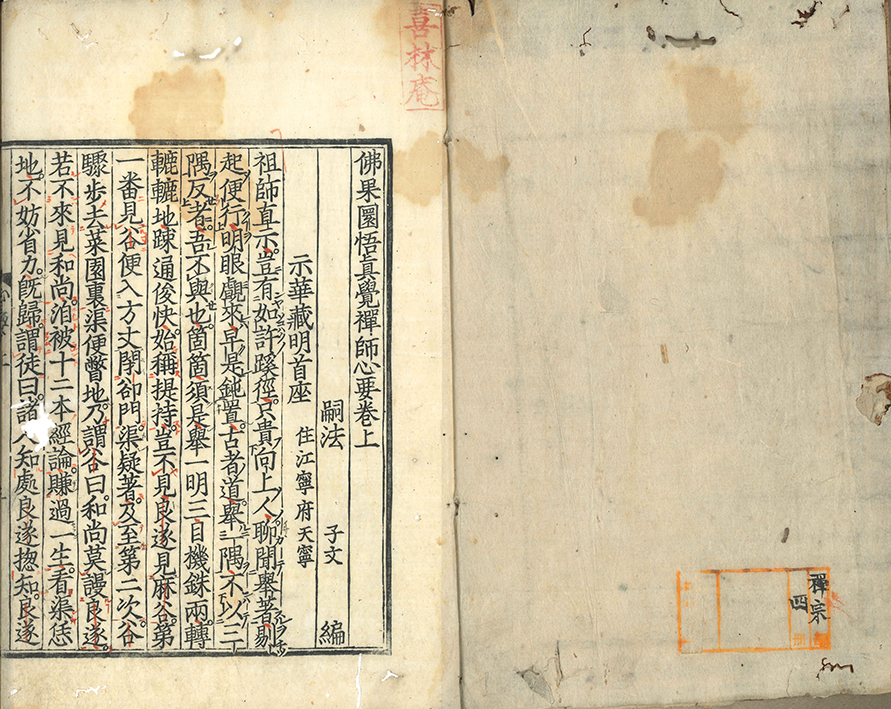 禪宗
四
冊
喜林庵
佛果圜悟真覺禪師心要卷上
嗣法 子文 編
示華藏明首座 住江寧府天寧
祖師直示豈有如許蹊徑只貴向上人聊聞舉著剔
起便行明眼覷來早是鈍置古者道舉一隅不以三
隅反者吾不與也箇箇須是舉一明三目機銖兩轉
轆轆地踈通俊快始稱提持豈不見良遂見麻谷第
一番見谷便入方丈閉卻門渠疑著及至第二次谷
驟步去菜園裏渠便瞥地乃謂谷曰和尚莫謾良遂
若不來見和尚洎被十二本經論賺過一生看渠恁
地不妨省力既歸謂徒曰諸人知處良遂揔知良遂